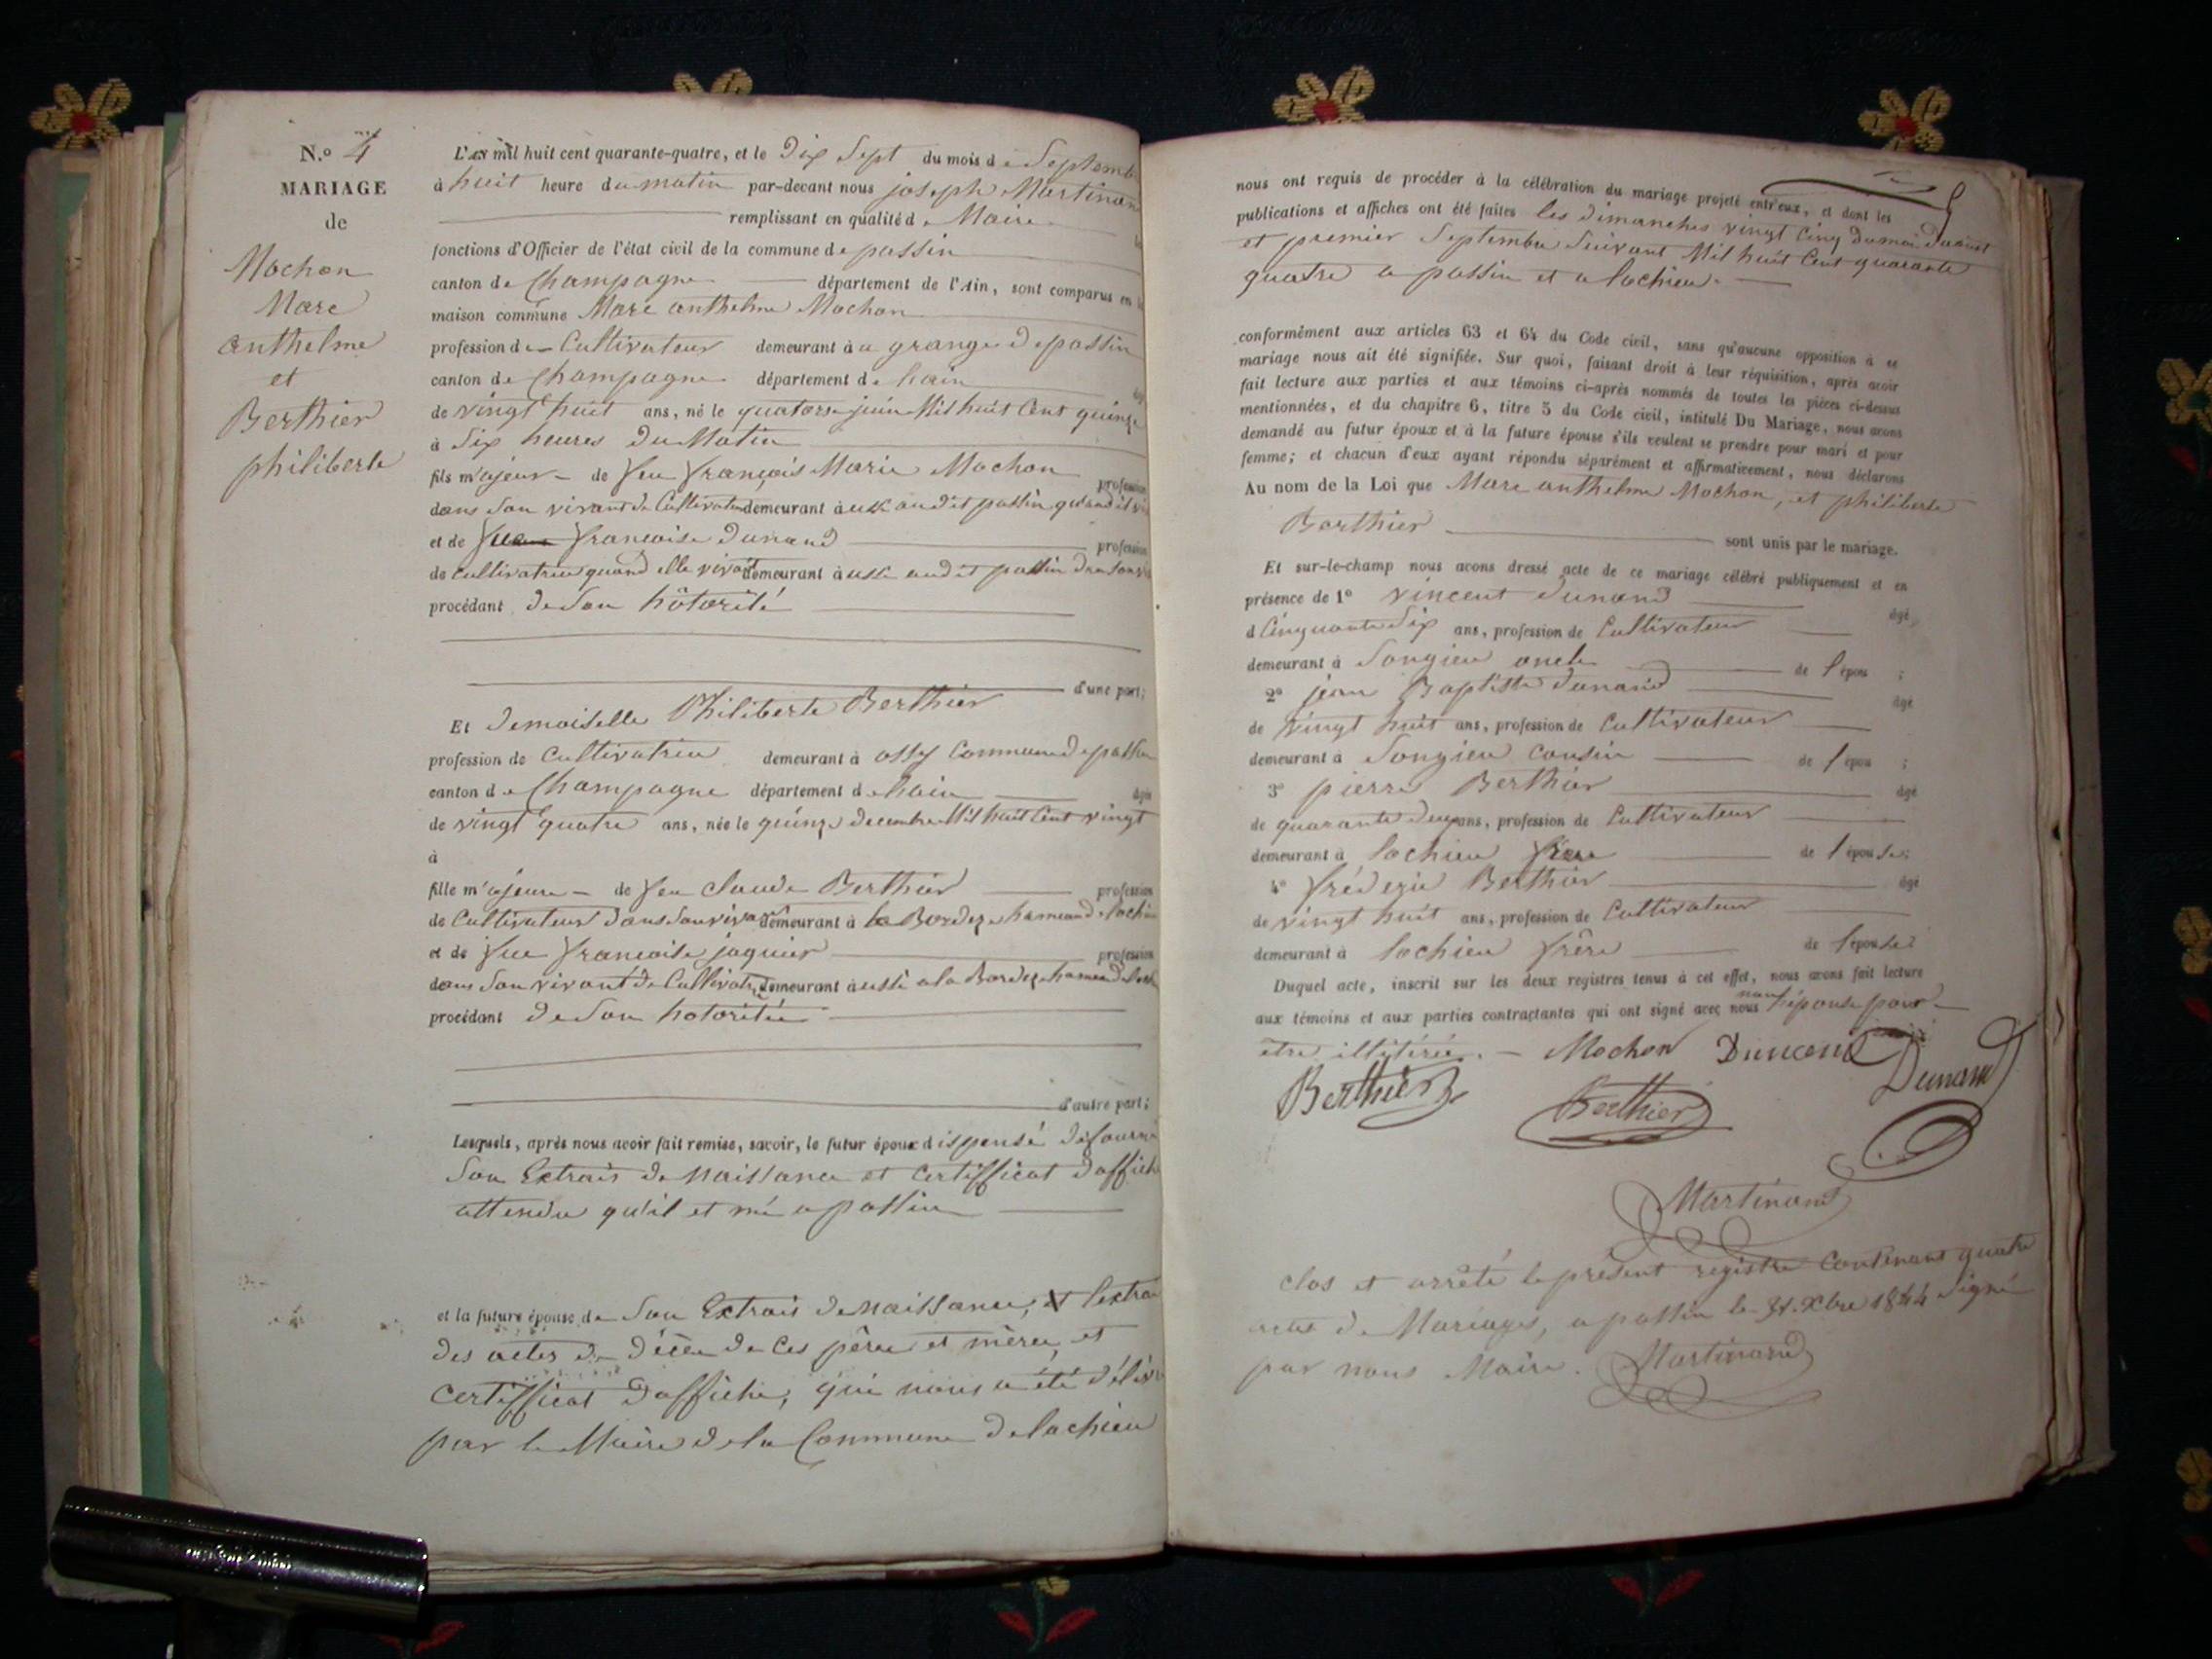 N.º 4
MARIAGE
de
Mochon
Marc
anthelme
et
Berthier
philiberte
L'an mil huit cent quarante-quatre, et le Dix Sept du mois de Septembre
à huit heure du matin par-devant nous joseph Martinand
remplissant en qualité de Maire
fonctions d'Officier de l'état civil de la commune de passin
canton de Champagne département de l'Ain, sont comparus en la
maison commune Marc anthelme Mochon
profession de Cultivateur demeurant à a grange de passin
canton de Champagne département de hain
de vingt huit ans, né le quatorse juin Mil huit Cent quinze
à Six heures Du Matin
fils majeur de feu françois Marie Mochon profession
dans Son vivant de Cultivateur demeurant à ussi audit passin quand il
et de francoise Dunand profession
de cultivatrice quand elle vivait demeurant à ussi audit passin
procédant de Son hôtorité
d'une part;
Et Demoiselle Philiberte Berthier
profession de Cultivatrice demeurant à ossy Commune de passin
canton de Champagne département de hain âgée
de vingt quatre ans, née le quinze decembre Mil huit Cent vingt
à
fille majeure de feu claude Berthier profession
de Cultivateur dans Son vivant demeurant à la Bordeze hameau de lochieu
et de feue francoise jaquier profession
dans Son vivant de Cultivatrice demeurant à ussi a la Bordeze hameau de
procédant de Son hotoritée
d'autre part;
Lesquels, après nous avoir fait remise, savoir, le futur époux dispensé de fournir
Son Extrais de Naissance et Certifficat daffiche
attendu qu'il et né a passin
et la future épouse de Son Extrais de Naissance, et lextrai
des actes de décée de Ces père et mère, et
Certifficat daffiche, qui nous a été délivré
par le Maire de la Commune de lochieu
nous ont requis de procéder à la célébration du mariage projeté entr'eux, et dont les
publications et affiches ont été faites les dimanches vingt Cinq du mois daoust
et premier Septembre Suivant Mil huit Cent quarante
quatre a passin et a lochieu.
conformément aux articles 63 et 64 du Code civil, sans qu'aucune opposition à ce
mariage nous ait été signifiée. Sur quoi, faisant droit à leur réquisition, après avoir
fait lecture aux parties et aux témoins ci-après nommés de toutes les pièces ci-dessus
mentionnées, et du chapitre 6, titre 5 du Code civil, intitulé Du Mariage, nous avons
demandé au futur époux et à la future épouse s'ils veulent se prendre pour mari et pour
femme; et chacun d'eux ayant répondu séparément et affirmativement, nous déclarons
Au nom de la Loi que Marc anthelme Mochon, et philiberte
Berthier sont unis par le mariage.
Et sur-le-champ nous avons dressé acte de ce mariage célébré publiquement et en
présence de 1º vincent dunand âgé
d Cinquante Six ans, profession de Cultivateur
demeurant à Songieu oncle de l'épou ;
2º jean Baptiste Dunand âgé
de vingt huit ans, profession de Cultivateur
demeurant à Songieu cousin de l'épou ;
3º pierre Berthier âgé
de quarante deux ans, profession de Cultivateur
demeurant à lochieu frère de l'épouse;
4º fréderic Berthier âgé
de vingt huit ans, profession de Cultivateur
demeurant à lochieu frère de l'épouse;
Duquel acte, inscrit sur les deux registres tenus à cet effet, nous avons fait lecture
aux témoins et aux parties contractantes qui ont signé avec nous non l'épouse pour
être illitérée. Mochon Dunand
Berthier Berthier Dunand
Martinand
Clos et arrêté le présent registre Contenant quatre
actes de Mariages, a passin le 31. Xbre 1844 Signé
par nous Maire. Martinand